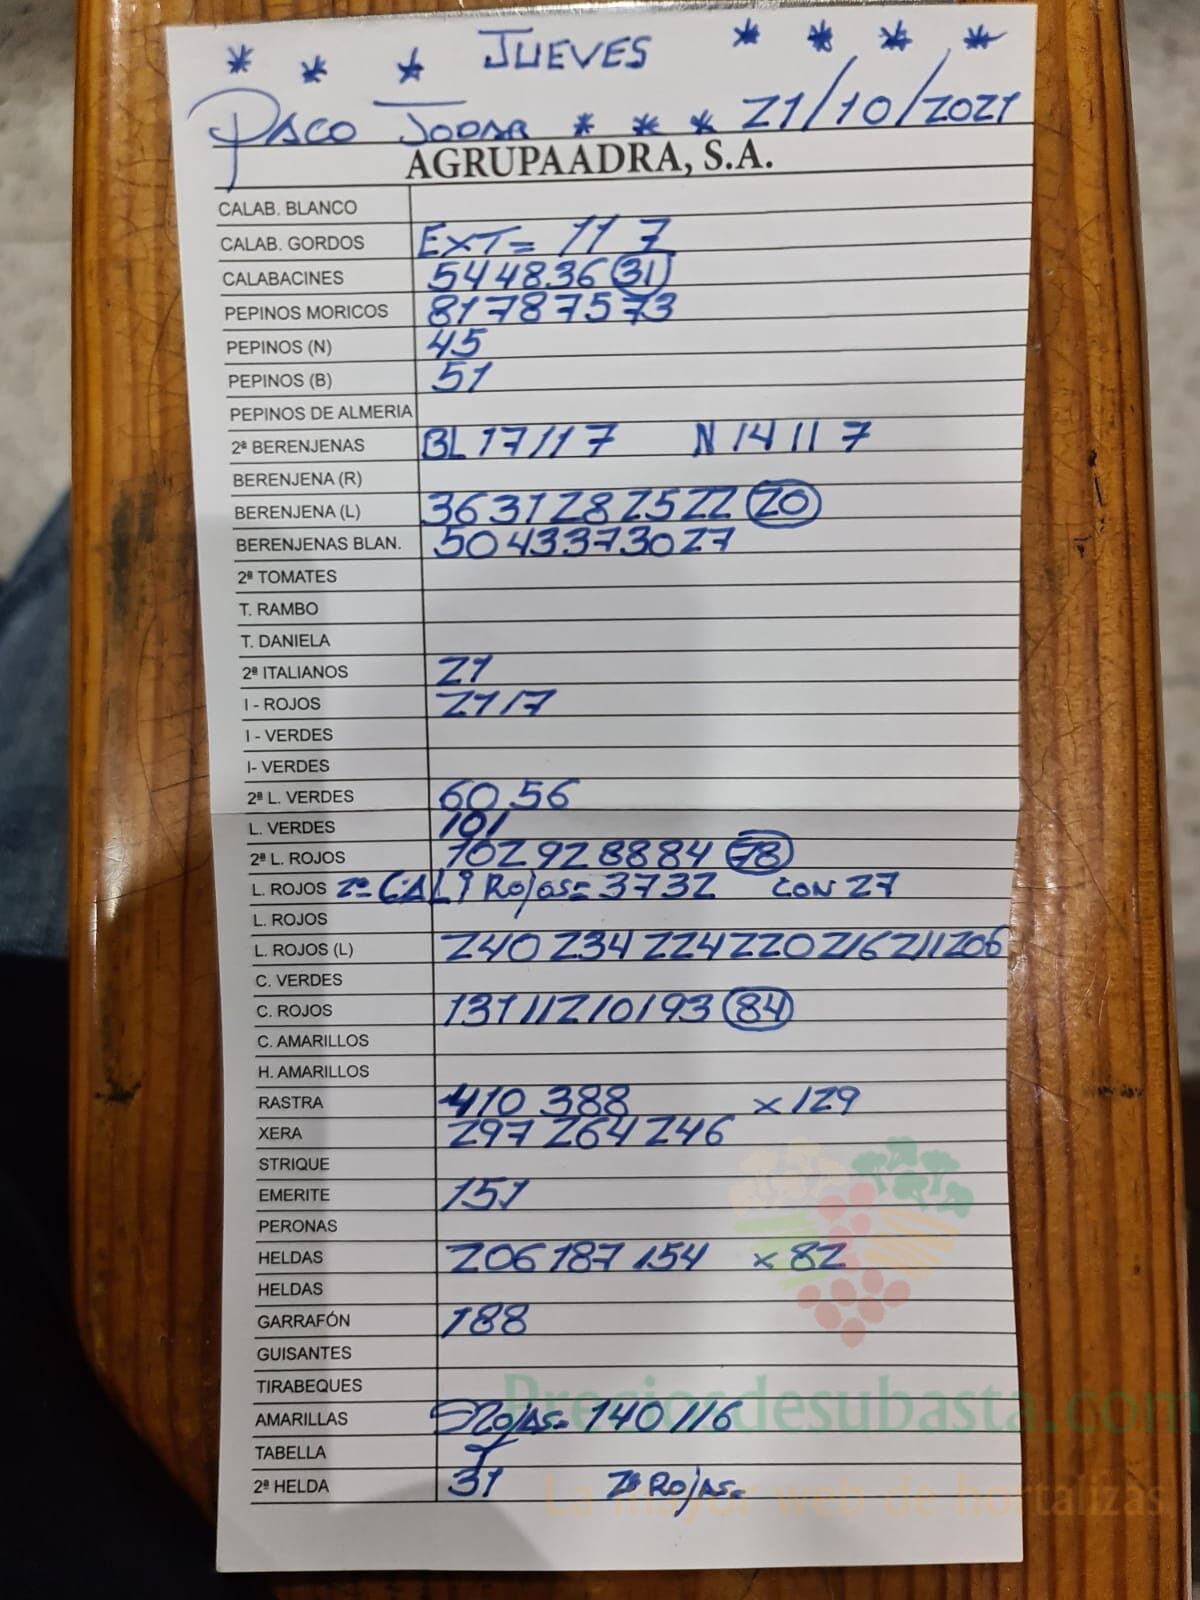 * * * JUEVES * * * *
PACO JODAR * * * 21/10/2021
AGRUPAADRA, S.A.
CALAB. BLANCO
CALAB. GORDOS EXT= 11 7
CALABACINES 54 48 36 (31)
PEPINOS MORICOS 81 78 75 73
PEPINOS (N) 45
PEPINOS (B) 51
PEPINOS DE ALMERIA
2ª BERENJENAS BL 17 11 7 N 14 11 7
BERENJENA (R)
BERENJENA (L) 36 31 28 25 22 (20)
BERENJENAS BLAN. 50 43 37 30 27
2ª TOMATES
T. RAMBO
T. DANIELA
2ª ITALIANOS 21
I - ROJOS 21 17
I - VERDES
I- VERDES
2ª L. VERDES 60 56
L. VERDES 101
2ª L. ROJOS 102 92 88 84 (78)
L. ROJOS 2ª CALI ROJOS= 37 32 CON 27
L. ROJOS
L. ROJOS (L) 240 234 224 220 216 211 206
C. VERDES
C. ROJOS 131 112 101 93 (84)
C. AMARILLOS
H. AMARILLOS
RASTRA 410 388 x 129
XERA 297 264 246
STRIQUE
EMERITE 151
PERONAS
HELDAS 206 187 154 x 82
HELDAS
GARRAFÓN 188
GUISANTES
TIRABEQUES
Preciosdesubasta.com
AMARILLAS ROJAS= 140 116
TABELLA
2ª HELDA 31 2ª ROJAS=
La mayor web de hortalizas